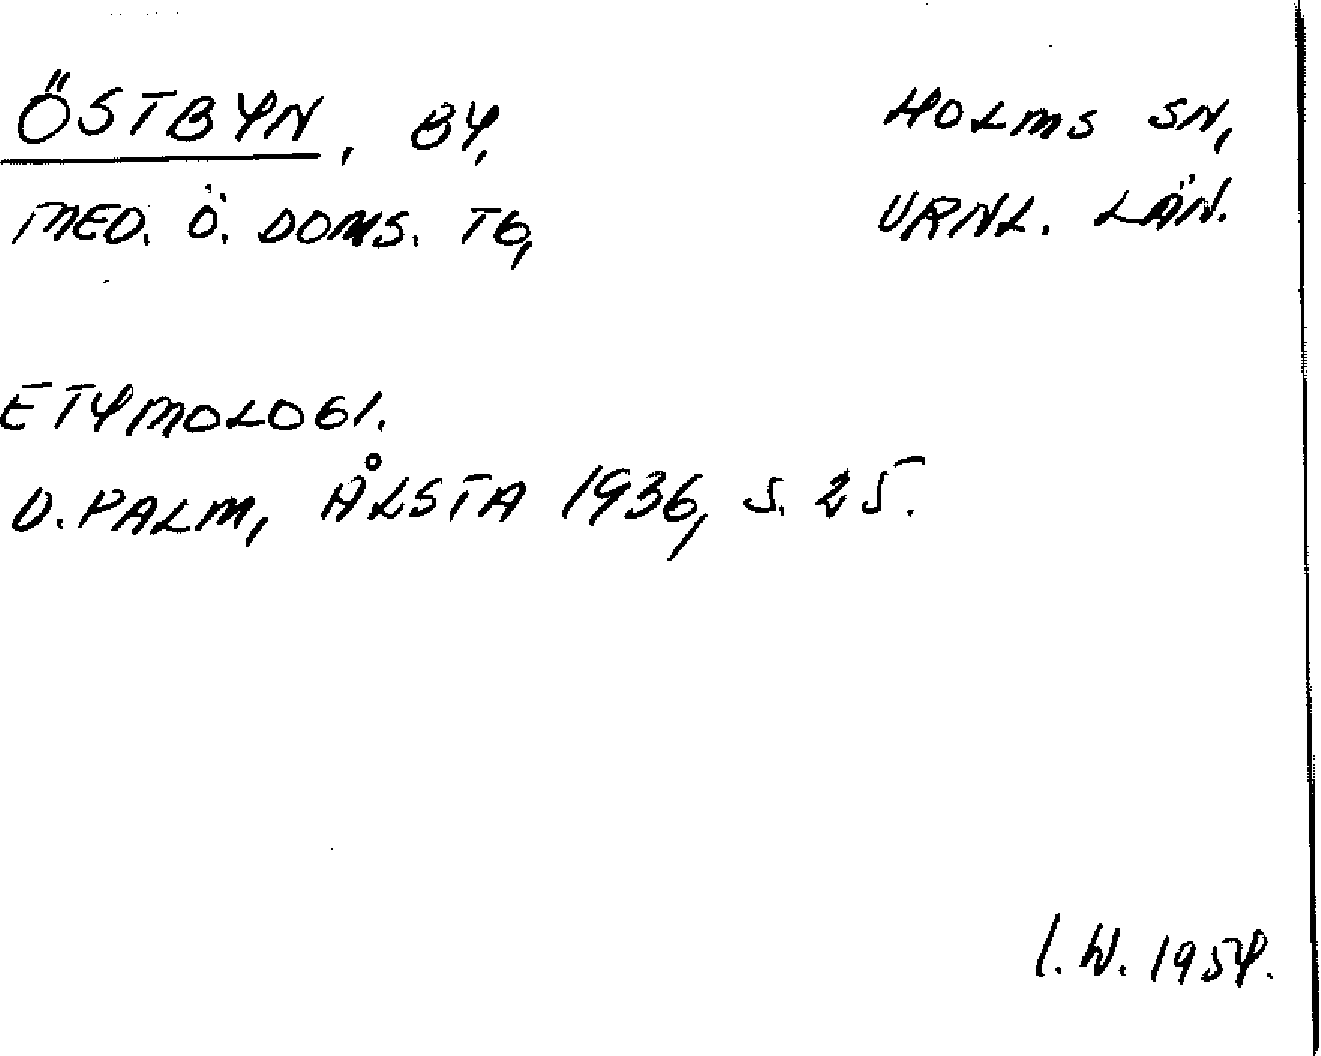 ÖSTBYN, BY, HOLMS SN,
MED. Ö. DOMS. TG, VRNL. LÄN.
ETYMOLOGI.
D. PALM, ÅLSTA 1936, S. 25.
I. W. 1954.